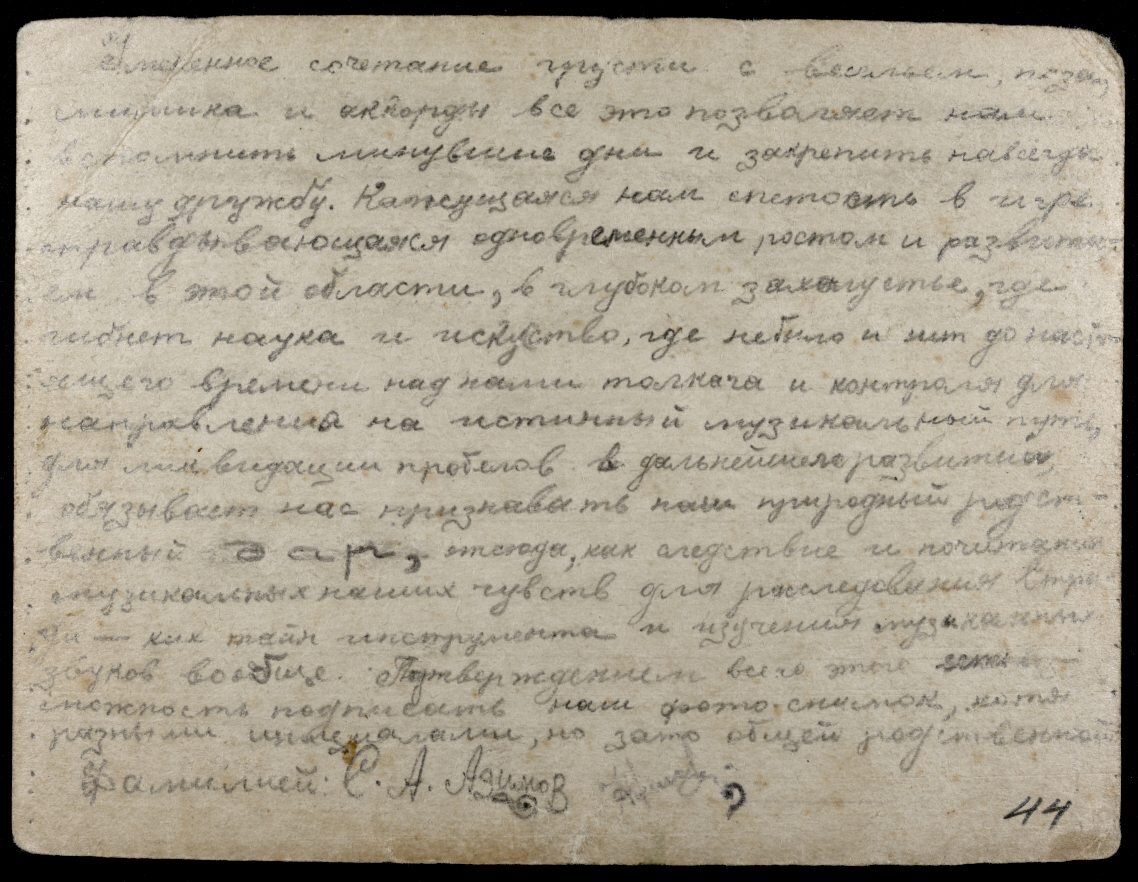 Умоленное сочетание грусти с весельем, поза,
мимика и аккорды все это позваляет нам
вспомнить минувшие дни и закрепить навсегда
нашу дружбу. Кажущаяся нам спетость в игре
оправдывающаяся одновременным ростом и развить-
ем в этой области, в глубоком захолустье, где
гибнет наука и искуство, где небыло и нит до наст-
ящего времени над нами толкача и контроля для
направления на истинный музикальный путь,
для ликвидации пробелов в дальнейшего развития
обязывает нас признавать наш природный родст-
венный дар, отсюда, как следствие и почитание
музикальных наших чувств для расследования стра-
как тайн инструмента и изучения музикальных
звуков вообще. Потверждением всего этого есть
можность подписать наш фото-снимок, хотя
разными инициалами, но зато общей родственной
Фамилией: С. А. Азимов ?
44